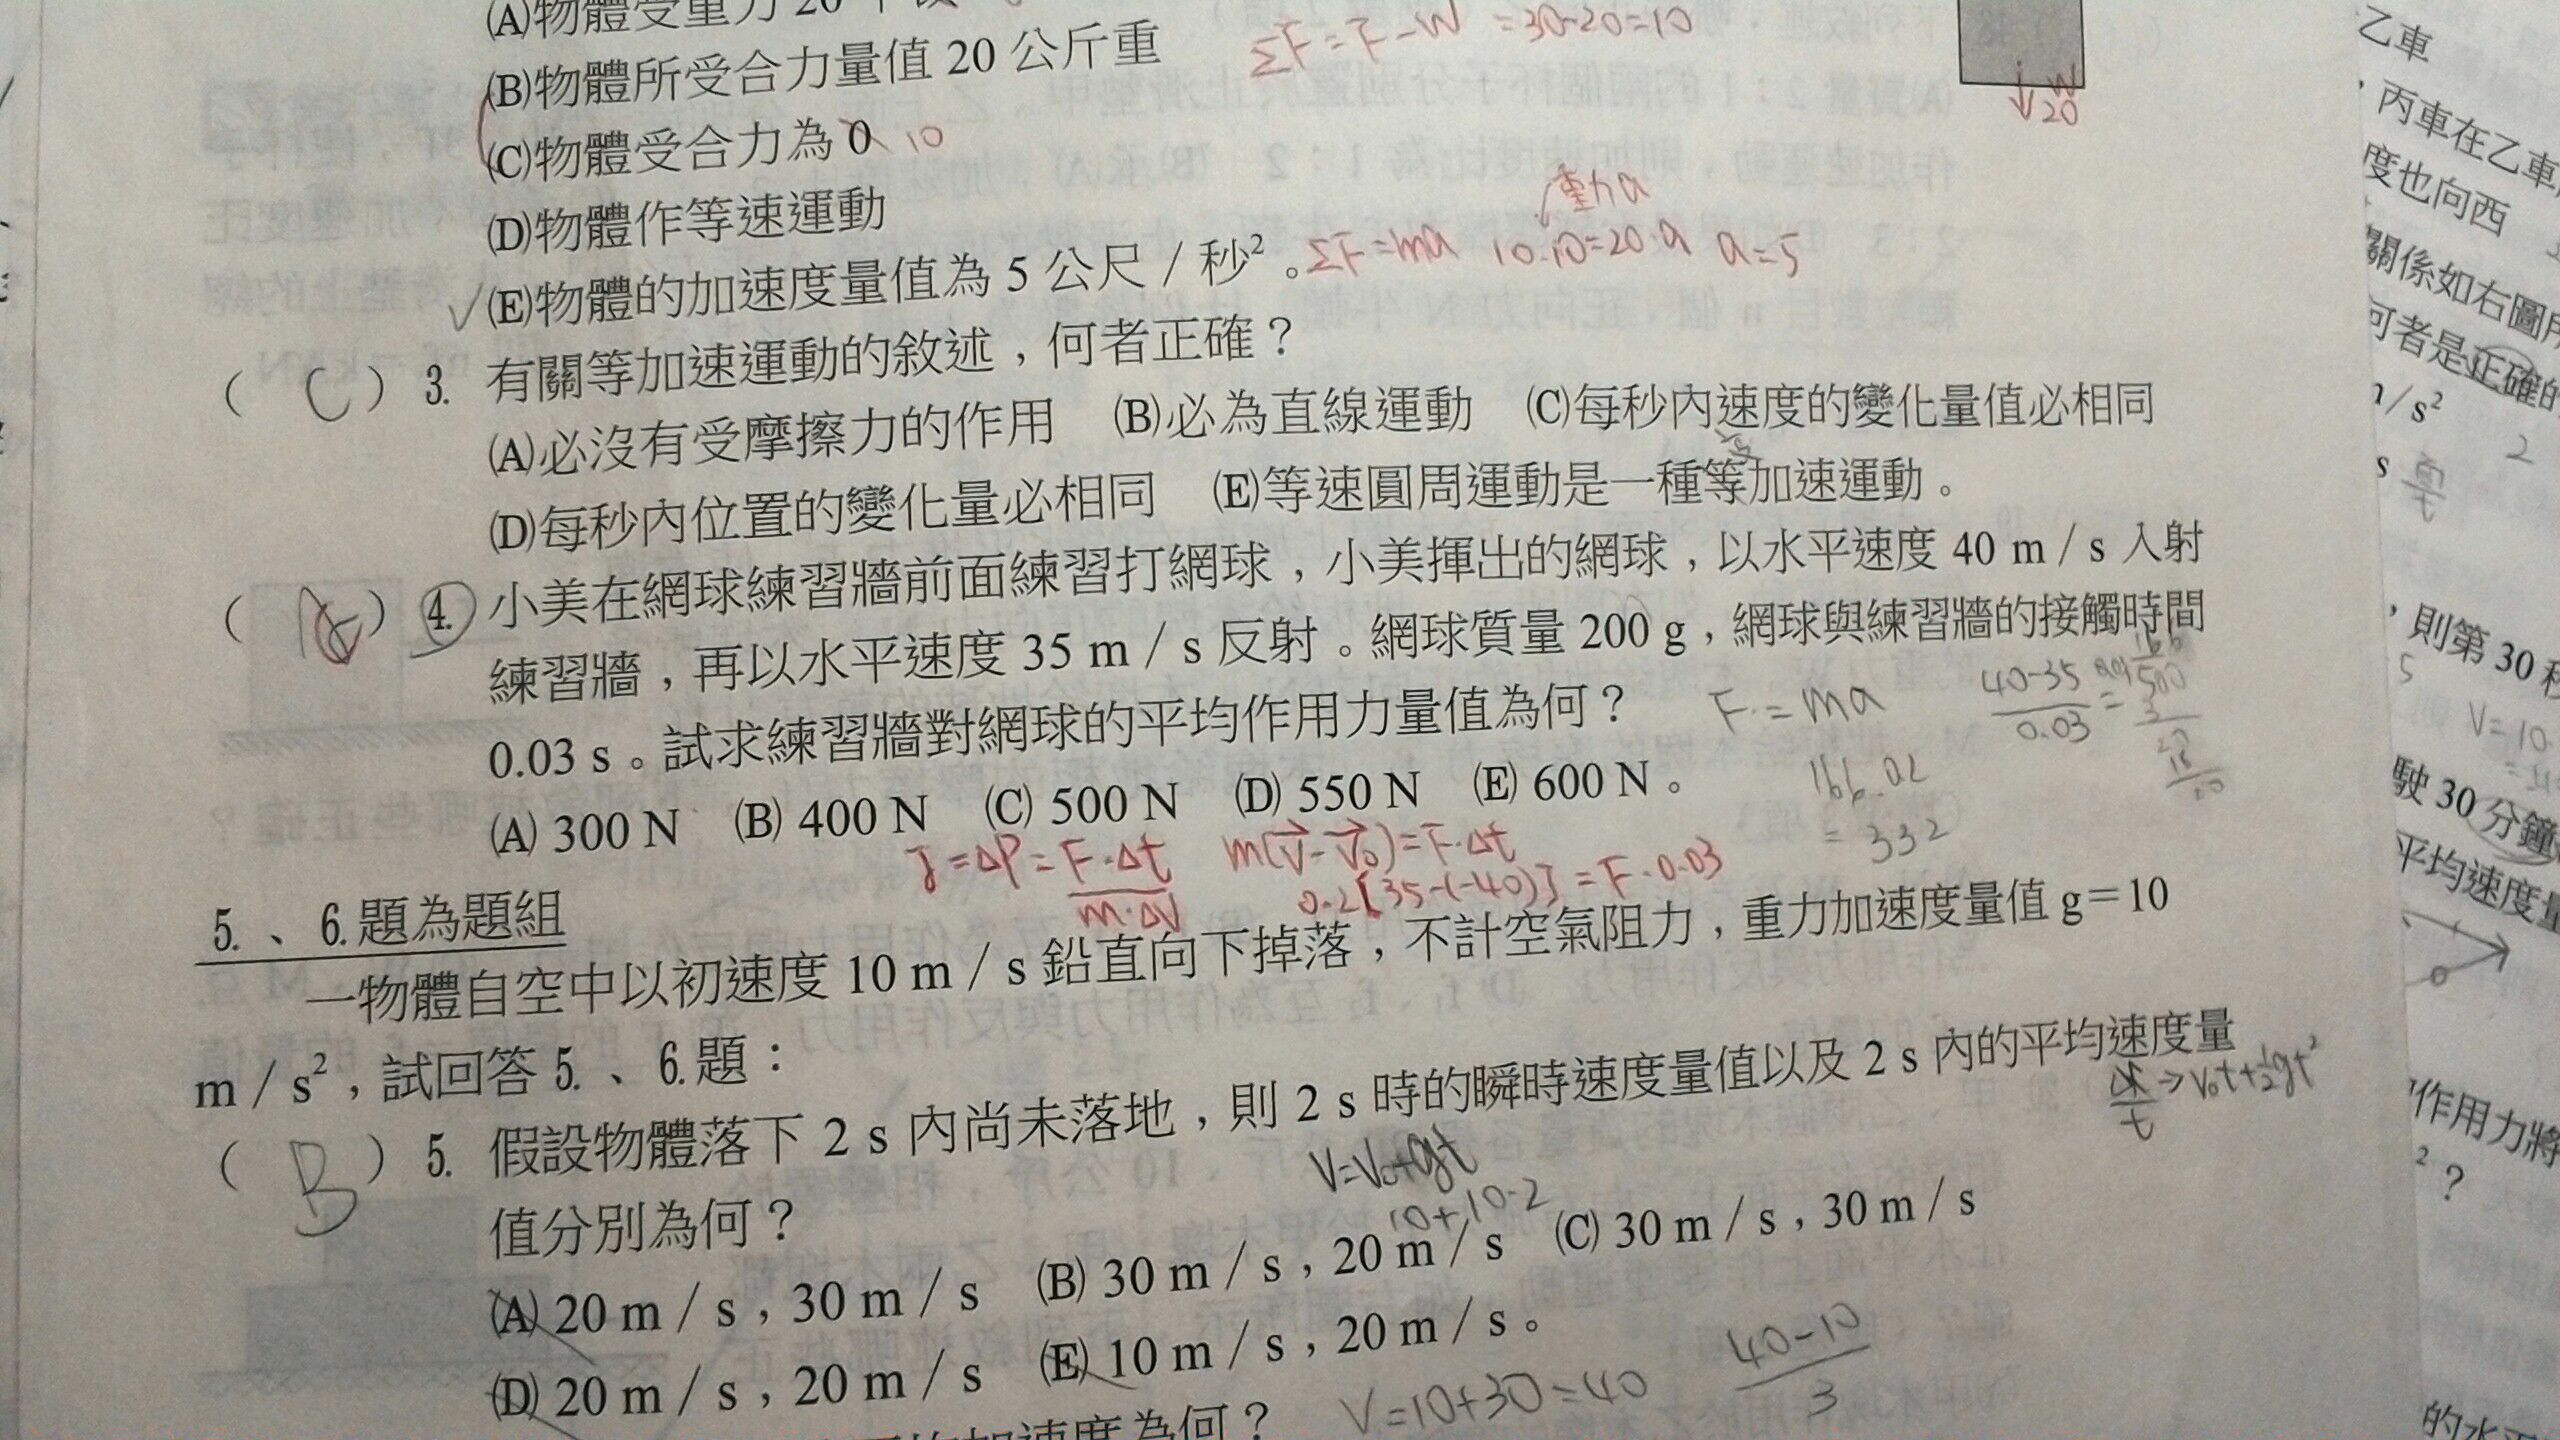 (A)物體受重力 20
(B)物體所受合力量值 20 公斤重
ΣF = F - W = 30-20=10
W
20
(C)物體受合力為 0 10
(D)物體作等速運動
重力a
(E)物體的加速度量值為 5 公尺／秒²。ΣF=ma 10.10=20.a a=5
( C ) 3. 有關等加速運動的敘述，何者正確？
(A)必沒有受摩擦力的作用 (B)必為直線運動 (C)每秒內速度的變化量值必相同
變
(D)每秒內位置的變化量必相同 (E)等速圓周運動是一種等加速運動。
( ) 4. 小美在網球練習牆前面練習打網球，小美揮出的網球，以水平速度 40 m／s 入射
練習牆，再以水平速度 35 m／s 反射。網球質量 200 g，網球與練習牆的接觸時間
0.03 s。試求練習牆對網球的平均作用力量值為何？
F = ma
40-35
0.03
=
(A) 300 N (B) 400 N (C) 500 N (D) 550 N (E) 600 N。
= 332
J = ΔP = F·Δt
m·ΔV
m(V-V₀)=F·Δt
0.2[35-(-40)] = F·0.03
5.、6.題為題組
一物體自空中以初速度 10 m／s 鉛直向下掉落，不計空氣阻力，重力加速度量值 g＝10
m／s²，試回答 5.、6.題：
( B ) 5. 假設物體落下 2 s 內尚未落地，則 2 s 時的瞬時速度量值以及 2 s 內的平均速度量
→V₀t+½gt²
t
V=V₀+gt
10+10·2
值分別為何？
(A) 20 m／s，30 m／s (B) 30 m／s，20 m／s (C) 30 m／s，30 m／s
(D) 20 m／s，20 m／s (E) 10 m／s，20 m／s。
V=10+30=40
40-10
3
加速度為何？
乙車
，丙車在乙車
度也向西
關係如右圖所
何者是正確的
m/s²
2
s
，則第 30 秒
5
V=10
駛 30 分鐘
平均速度量
作用力將
²？
的水平